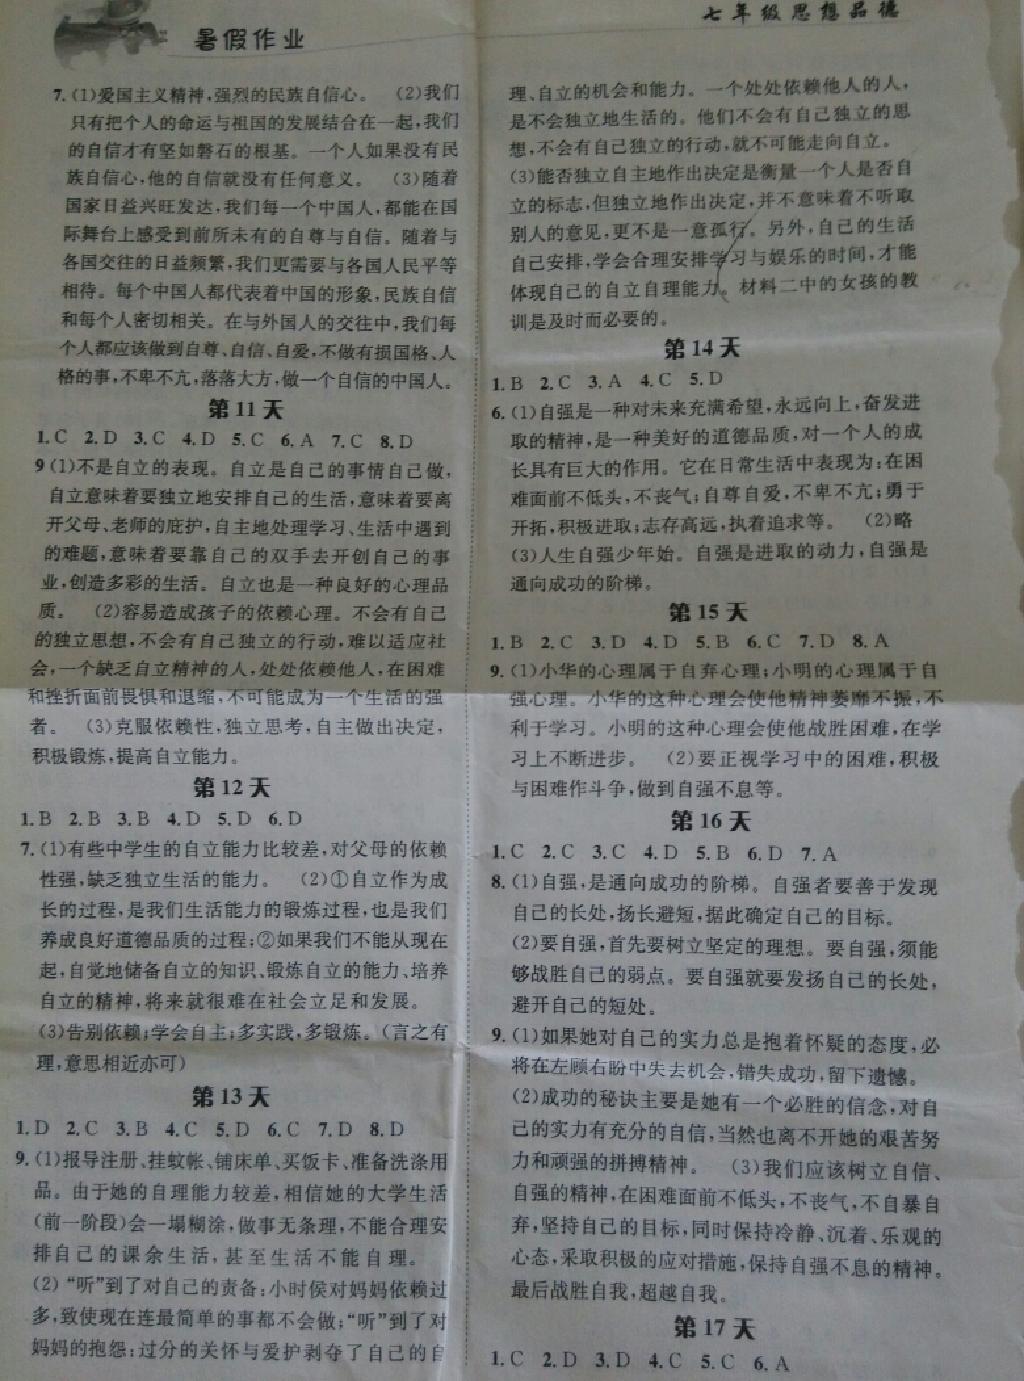 暑假作业
七年级思想品德
7.(1)爱国主义精神,强烈的民族自信心。 (2)我们
只有把个人的命运与祖国的发展结合在一起,我们
的自信才有坚如磐石的根基。一个人如果没有民
族自信心,他的自信就没有任何意义。 (3)随着
国家日益兴旺发达,我们每一个中国人,都能在国
际舞台上感受到前所未有的自尊与自信。随着与
各国交往的日益频繁,我们更需要与各国人民平等
相待。每个中国人都代表着中国的形象,民族自信
和每个人密切相关。在与外国人的交往中,我们每
个人都应该做到自尊、自信、自爱,不做有损国格、人
格的事,不卑不亢,落落大方,做一个自信的中国人。
第11天
1.C 2.D 3.C 4.D 5.C 6.A 7.C 8.D
9(1)不是自立的表现。自立是自己的事情自己做,
自立意味着要独立地安排自己的生活,意味着要离
开父母、老师的庇护,自主地处理学习、生活中遇到
的难题,意味着要靠自己的双手去开创自己的事
业,创造多彩的生活。自立也是一种良好的心理品
质。 (2)容易造成孩子的依赖心理。不会有自己
的独立思想,不会有自己独立的行动,难以适应社
会,一个缺乏自立精神的人,处处依赖他人,在困难
和挫折面前畏惧和退缩,不可能成为一个生活的强
者。 (3)克服依赖性,独立思考,自主做出决定,
积极锻炼,提高自立能力。
第12天
1.B 2.B 3.B 4.D 5.D 6.D
7.(1)有些中学生的自立能力比较差,对父母的依赖
性强,缺乏独立生活的能力。 (2)①自立作为成
长的过程,是我们生活能力的锻炼过程,也是我们
养成良好道德品质的过程;②如果我们不能从现在
起,自觉地储备自立的知识、锻炼自立的能力、培养
自立的精神,将来就很难在社会立足和发展。
(3)告别依赖;学会自主;多实践,多锻炼。(言之有
理,意思相近亦可)
第13天
1.D 2.C 3.B 4.C 5.D 6.C 7.D 8.D
9.(1)报导注册、挂蚊帐、铺床单、买饭卡、准备洗涤用
品。由于她的自理能力较差,相信她的大学生活
(前一阶段)会一塌糊涂,做事无条理,不能合理安
排自己的课余生活,甚至生活不能自理。
(2)“听”到了对自己的责备;小时侯对妈妈依赖过
多,致使现在连最简单的事都不会做;“听”到了对
妈妈的抱怨:过分的关怀与爱护剥夺了自己的自
理、自立的机会和能力。一个处处依赖他人的人,
是不会独立地生活的。他们不会有自己独立的思
想,不会有自己独立的行动,就不可能走向自立。
(3)能否独立自主地作出决定是衡量一个人是否自
立的标志,但独立地作出决定,并不意味着不听取
别人的意见,更不是一意孤行。另外,自己的生活
自己安排,学会合理安排学习与娱乐的时间,才能
体现自己的自立自理能力。材料二中的女孩的教
训是及时而必要的。
第14天
1.B 2.C 3.A 4.C 5.D
6.(1)自强是一种对未来充满希望,永远向上,奋发进
取的精神,是一种美好的道德品质,对一个人的成
长具有巨大的作用。它在日常生活中表现为:在困
难面前不低头,不丧气;自尊自爱,不卑不亢;勇于
开拓,积极进取;志存高远,执着追求等。 (2)略
(3)人生自强少年始。自强是进取的动力,自强是
通向成功的阶梯。
第15天
1.B 2.C 3.D 4.D 5.B 6.C 7.D 8.A
9.(1)小华的心理属于自弃心理;小明的心理属于自
强心理。小华的这种心理会使他精神萎靡不振,不
利于学习。小明的这种心理会使他战胜困难,在学
习上不断进步。 (2)要正视学习中的困难,积极
与困难作斗争,做到自强不息等。
第16天
1.C 2.C 3.C 4.D 5.B 6.D 7.A
8.(1)自强,是通向成功的阶梯。自强者要善于发现
自己的长处,扬长避短,据此确定自己的目标。
(2)要自强,首先要树立坚定的理想。要自强,须能
够战胜自己的弱点。要自强就要发扬自己的长处,
避开自己的短处。
9.(1)如果她对自己的实力总是抱着怀疑的态度,必
将在左顾右盼中失去机会,错失成功,留下遗憾。
(2)成功的秘诀主要是她有一个必胜的信念,对自
己的实力有充分的自信,当然也离不开她的艰苦努
力和顽强的拼搏精神。 (3)我们应该树立自信、
自强的精神,在困难面前不低头,不丧气,不自暴自
弃,坚持自己的目标,同时保持冷静、沉着、乐观的
心态,采取积极的应对措施,保持自强不息的精神。
最后战胜自我,超越自我。
第17天
1.C 2.D 3.D 4.C 5.C 6.A